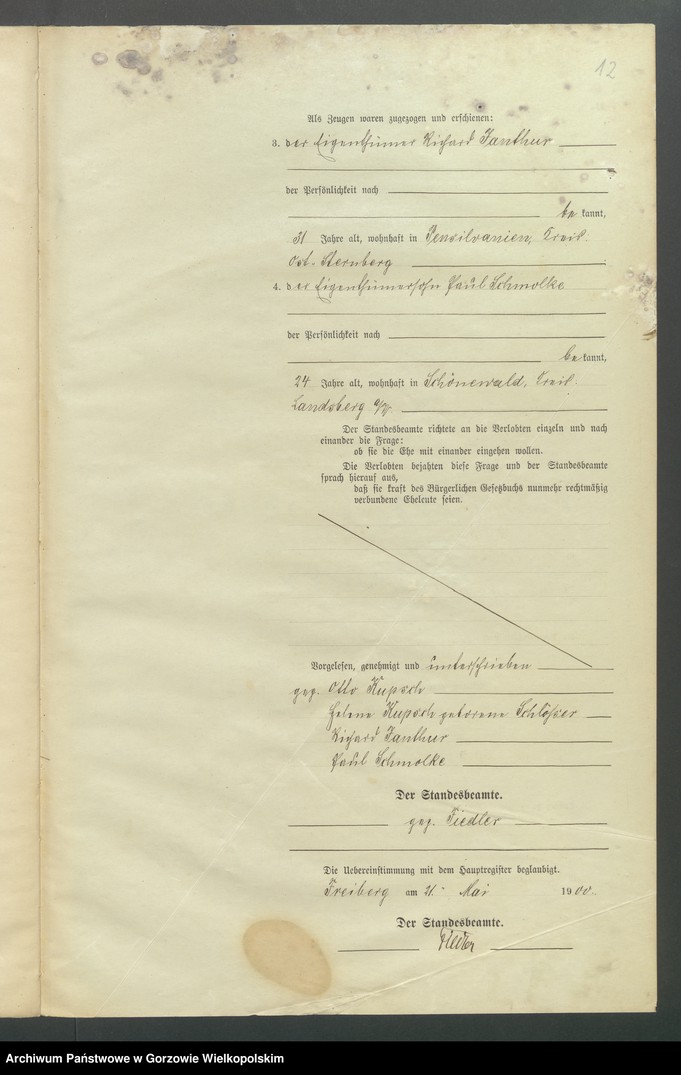 12
Als Zeugen waren zugezogen und erschienen:
3. der Eigenthümer Richard Janthur
der Persönlichkeit nach
be kannt,
31 Jahre alt, wohnhaft in Pensilvanien, Kreis
Ost-Sternberg
4. der Eigenthümersohn Paul Schmolke
der Persönlichkeit nach
be kannt,
24 Jahre alt, wohnhaft in Schönewald, Kreis
Landsberg a/W.
Der Standesbeamte richtete an die Verlobten einzeln und nach
einander die Frage:
ob sie die Ehe mit einander eingehen wollen.
Die Verlobten bejahten diese Frage und der Standesbeamte
sprach hierauf aus,
daß sie kraft des Bürgerlichen Gesetzbuchs nunmehr rechtmäßig
verbundene Eheleute seien.
Vorgelesen, genehmigt und unterschrieben
gez. Otto Kupsch
Helene Kupsch geborene Schlösser
Richard Janthur
Paul Schmolke
Der Standesbeamte.
gez. Fiedler
Die Uebereinstimmung mit dem Hauptregister beglaubigt.
Freiberg am 21. Mai 1900.
Der Standesbeamte.
Fiedler
Archiwum Państwowe w Gorzowie Wielkopolskim